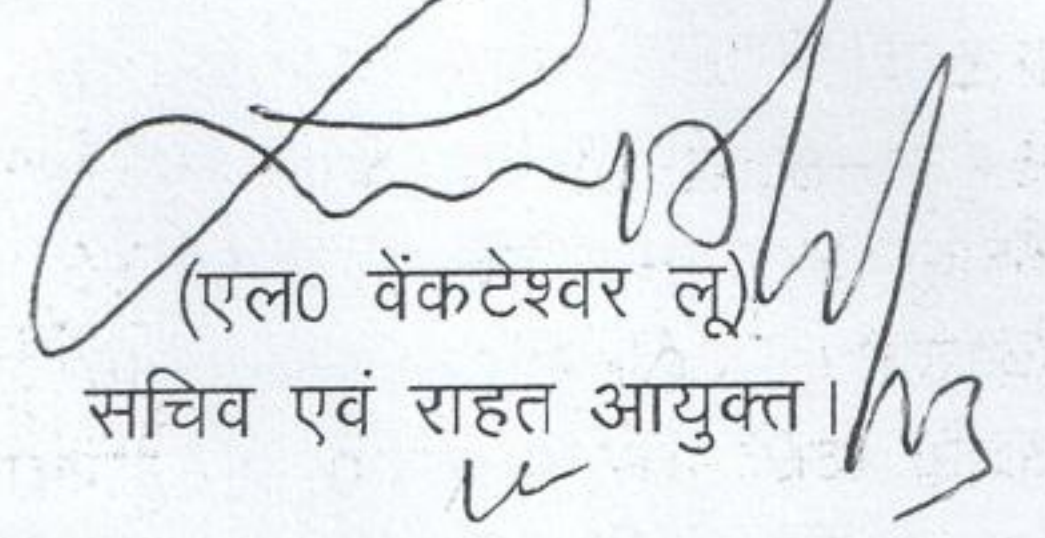 (एल0 वेंकटेश्वर लू)
सचिव एवं राहत आयुक्त।